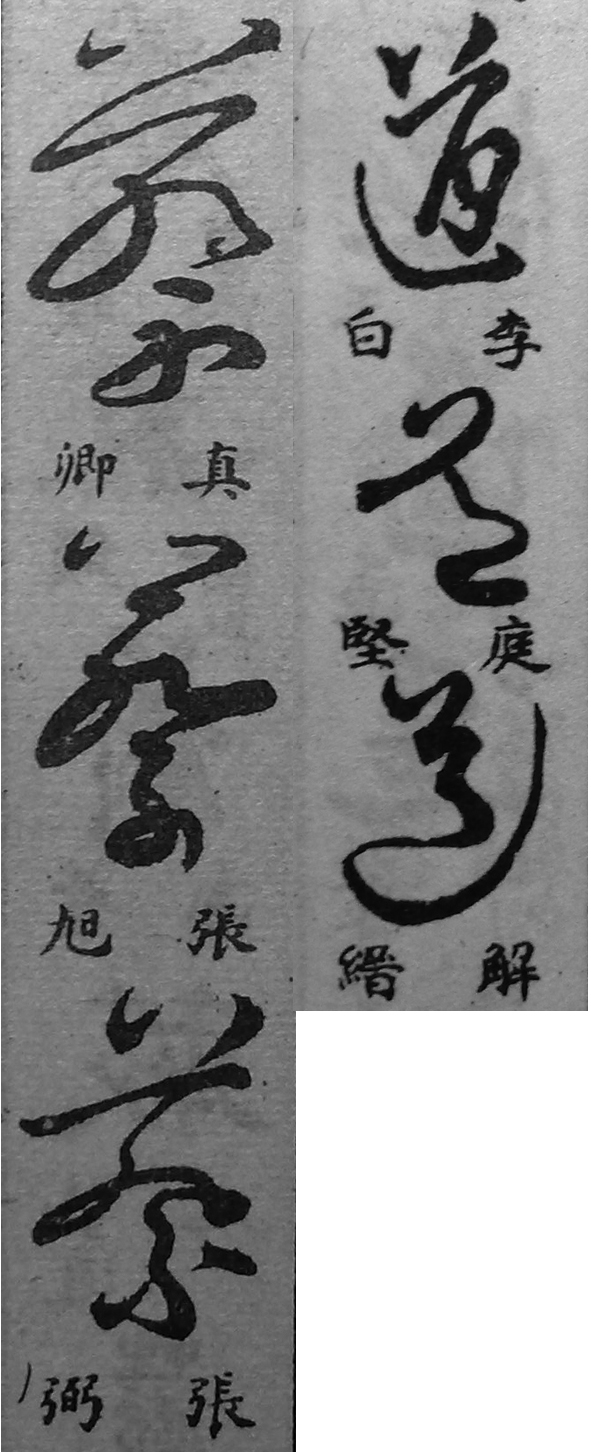 道
李白
道
庭堅
道
解縉
真卿
張旭
張弼